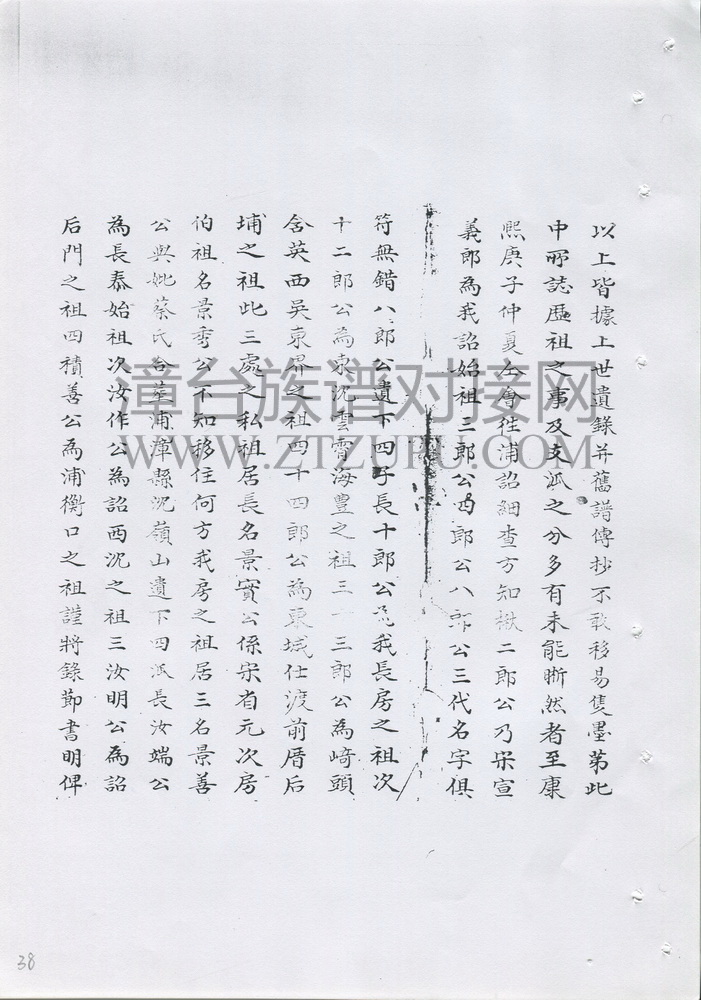 以上皆據上世遺錄并舊譜傳抄不敢移易隻墨第此
中所誌歷祖之事及支派之分多有未能晰然者至康
熙庚子仲夏会往浦詔細查方知楸二郎公乃宋宣
義郎為我詔始祖三郎公四郎公八郎公三代名字俱
符無錯八郎公遺下四子長十郎公為我長房之祖次
十二郎公為東沈雲霄海豊之祖三十三郎公為﨑頭
含英西吳東界之祖四十四郎公為東城仕渡前厝后
埔之祖此三處之私祖居長名景實公係宋省元次房
伯祖名景秀公不知移住何方我房之祖居三名景善
公與妣蔡氏合塟浦潭縣沉嶺山遺下四派長汝端公
為長泰始祖次汝作公為詔西沈之祖三汝明公為詔
后門之祖四積善公為浦衡口之祖謹將錄節書明俾
漳台族谱对接网
WWW.ZTZUPU.COM
38